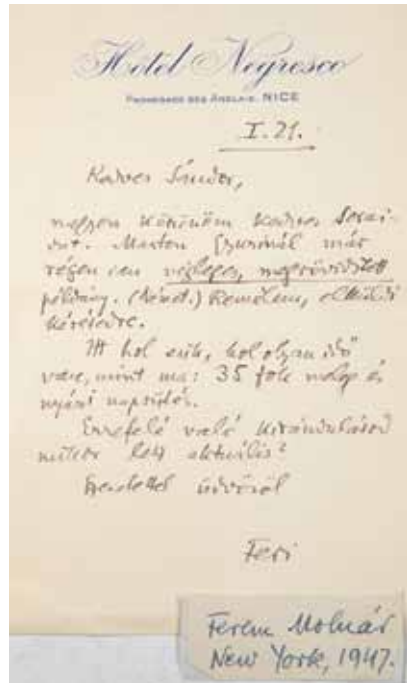 Hotel Negresco
PROMENADE DES ANGLAIS. NICE
I. 21.
Kedves Sándor,
nagyon köszönöm kedves sorai-
dat. Marton Gyurinál már
régen van végleges, megrövidített
példány. (Német.) Remélem, elküldi
kérésedre.
Itt hol esik, hol olyan idő
van, mint ma: 35 fok meleg és
nyári napsütés.
Errefelé való kirándulásod
mikor lesz aktuális?
Szeretettel üdvözöl
Feri
Ferenc Molnár
New York, 1947.